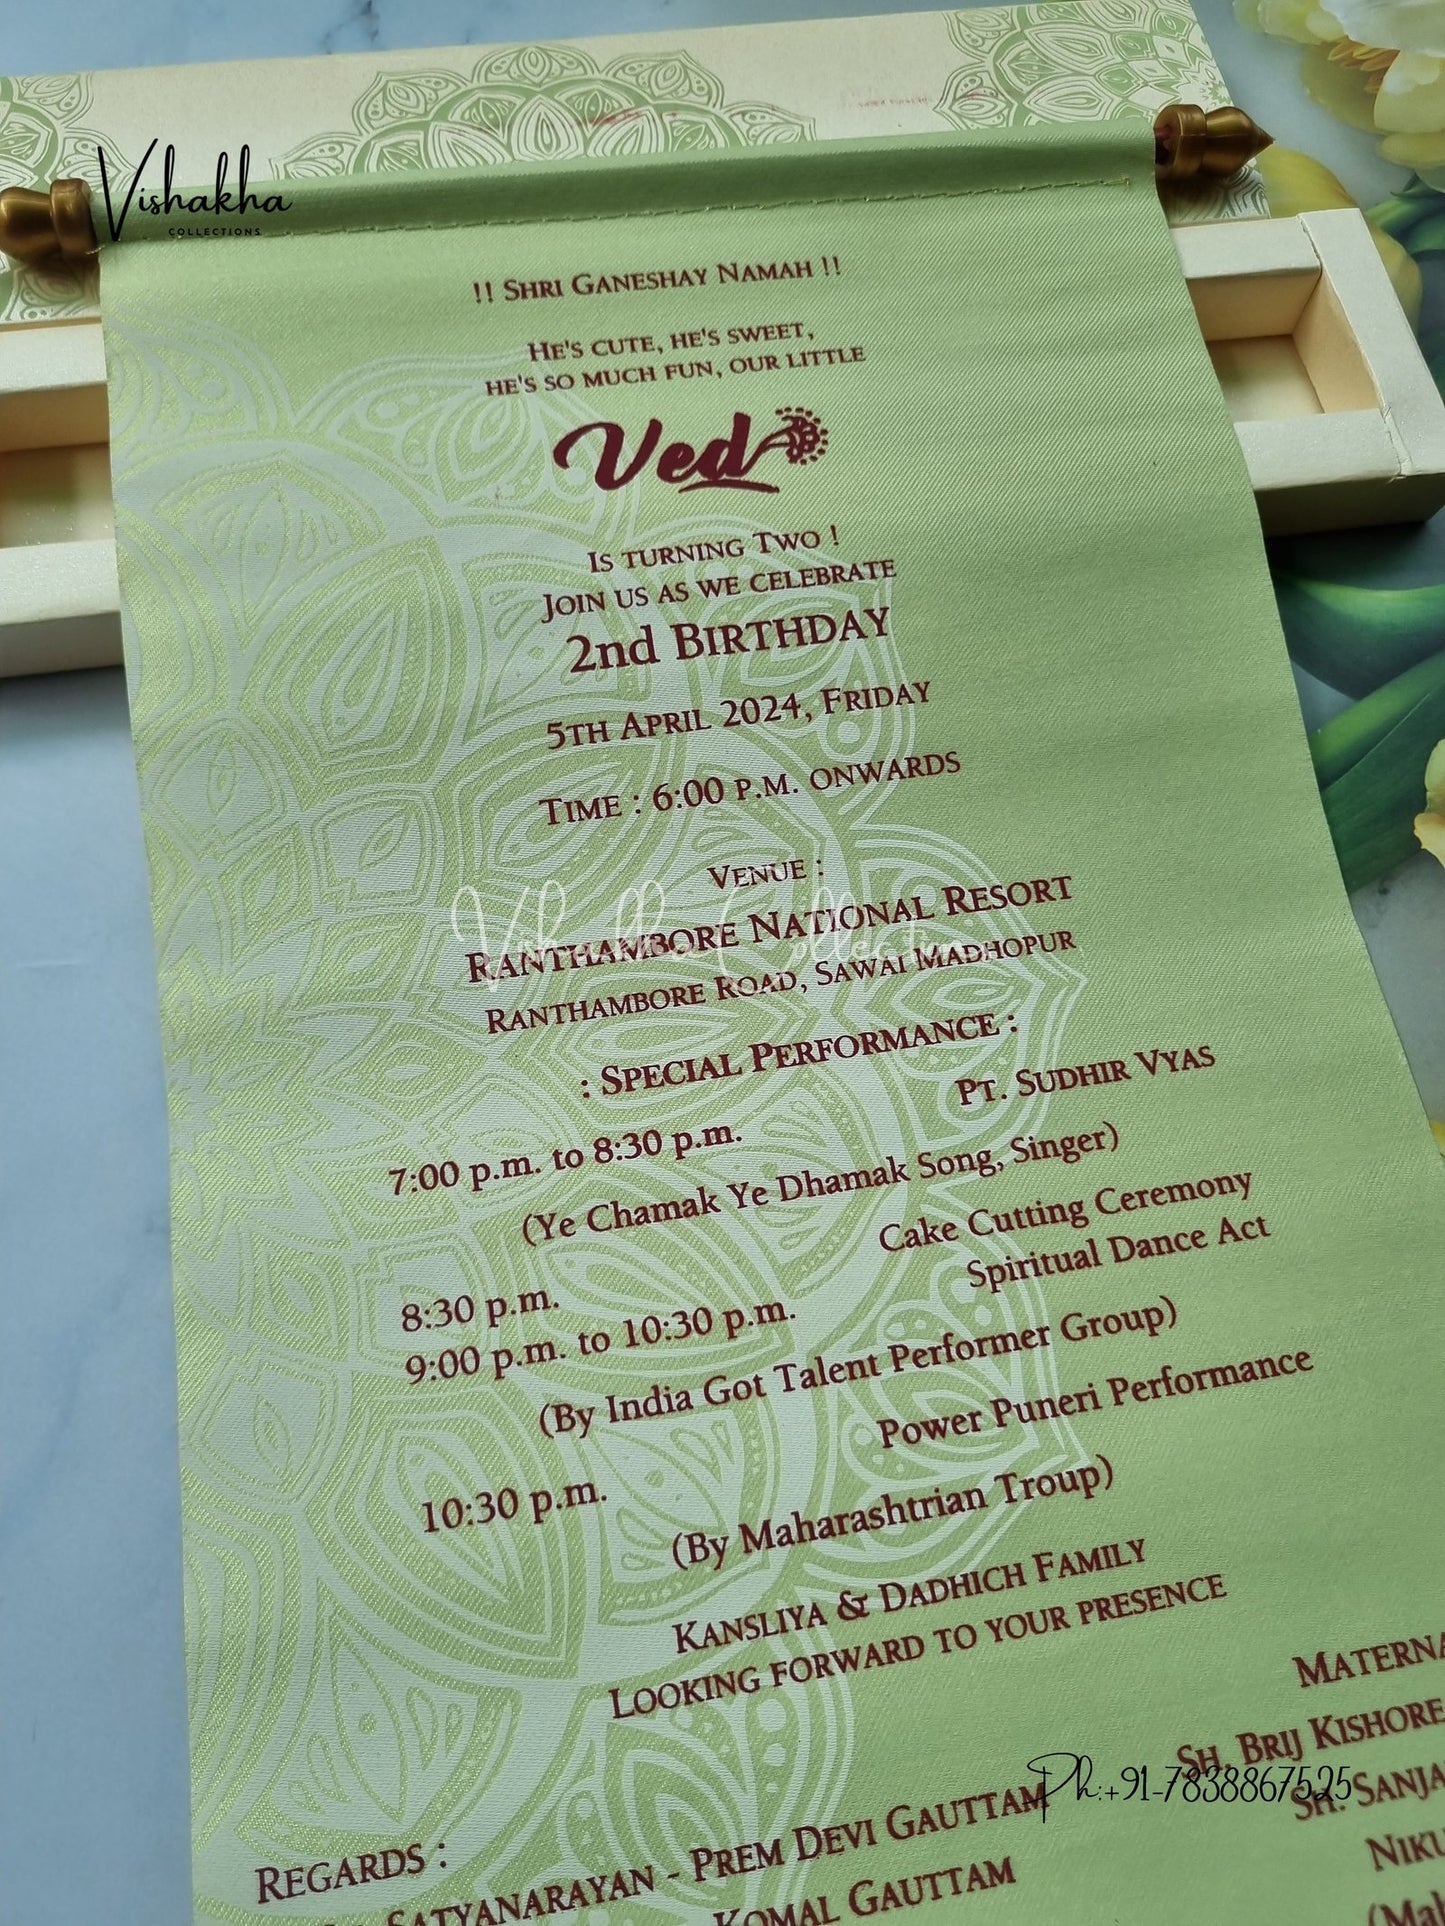 Vishakha
COLLECTIONS
!! SHRI GANESHAY NAMAH !!
HE'S CUTE, HE'S SWEET,
HE'S SO MUCH FUN, OUR LITTLE
Ved
IS TURNING TWO !
JOIN US AS WE CELEBRATE
2nd BIRTHDAY
5TH APRIL 2024, FRIDAY
TIME : 6:00 P.M. ONWARDS
VENUE :
Vishakha Collection
RANTHAMBORE NATIONAL RESORT
RANTHAMBORE ROAD, SAWAI MADHOPUR
: SPECIAL PERFORMANCE :
7:00 p.m. to 8:30 p.m. PT. SUDHIR VYAS
(Ye Chamak Ye Dhamak Song, Singer)
8:30 p.m. Cake Cutting Ceremony
9:00 p.m. to 10:30 p.m. Spiritual Dance Act
(By India Got Talent Performer Group)
10:30 p.m. Power Puneri Performance
(By Maharashtrian Troup)
KANSLIYA & DADHICH FAMILY
LOOKING FORWARD TO YOUR PRESENCE
REGARDS :
SATYANARAYAN - PREM DEVI GAUTTAM
KOMAL GAUTTAM
MATERNA
SH. BRIJ KISHORE
SH. SANJA
NIKU
(Mal
Ph:+91-7838867525